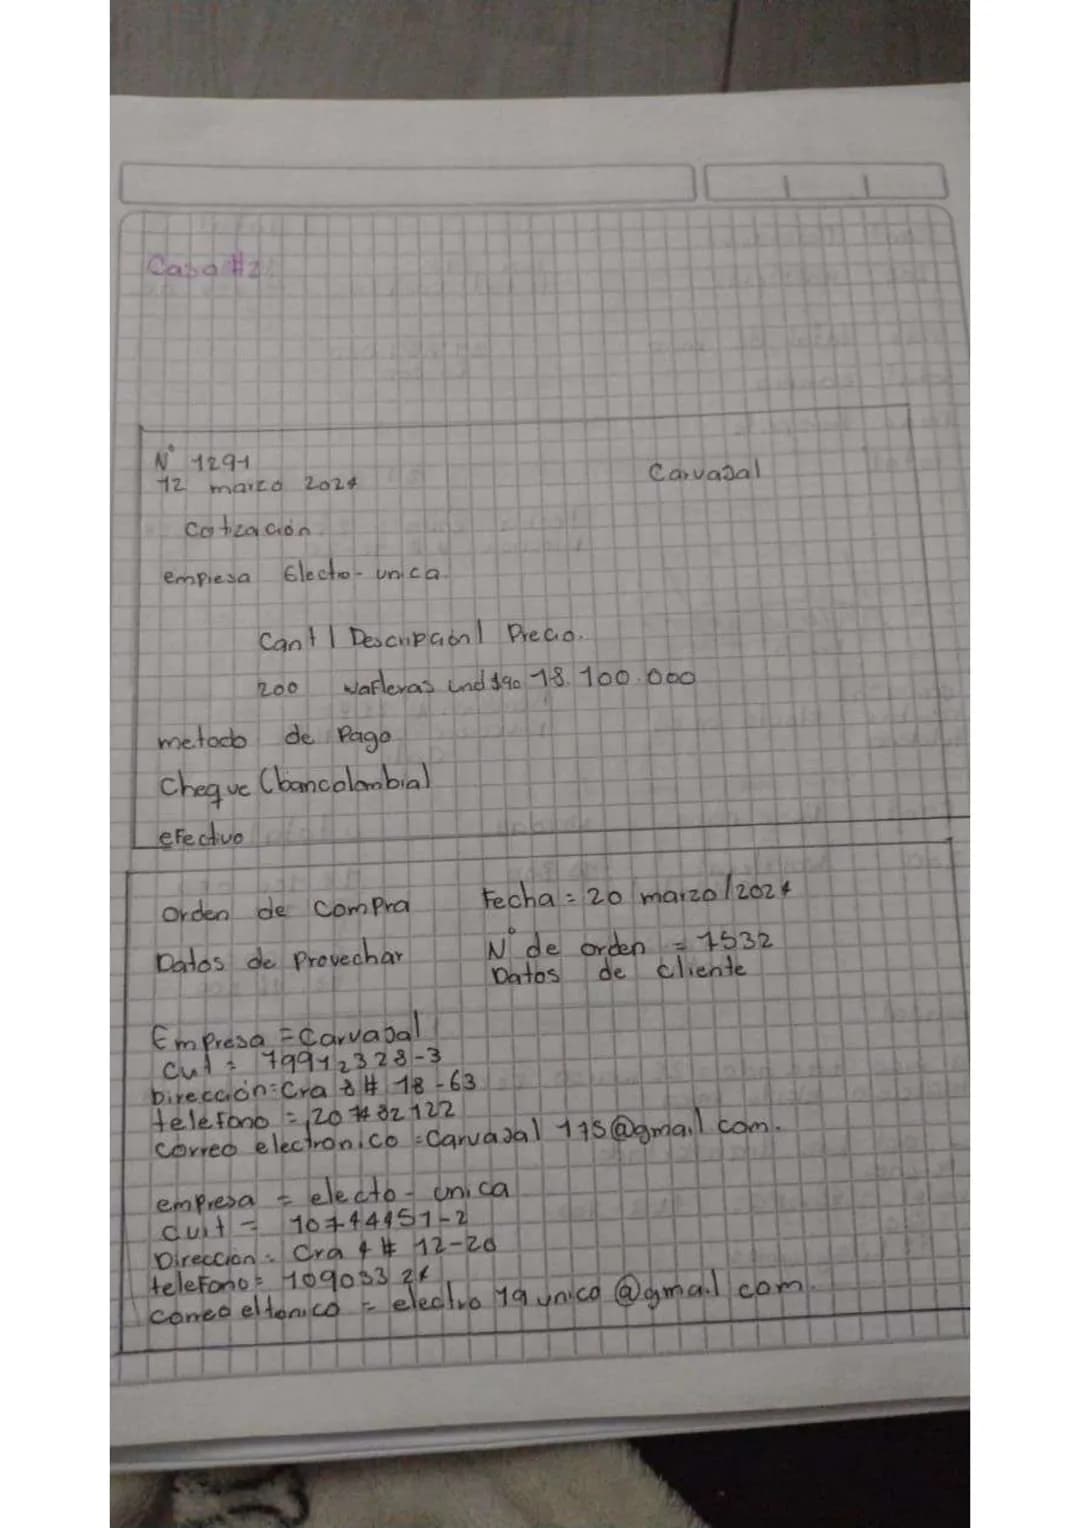 Caso #2
N° 1291
Carvajal
12 marzo 2024
Cotización.
empresa Electro-unica.
Cant | Descripción | Precio.
200 wafleras ind $90 18.100.000
metodo de Pago
Cheque (bancolombia)
efectivo
Orden de Compra Fecha = 20 marzo/2024
Datos de Provechar N° de orden = 1532
Datos de cliente
Empresa = Carvajal
Cut = 79912328-3
Dirección = Cra 8 # 18-63
telefono = 207482122
Correo electronico = Carvajal 175@gmail com.
empresa = electo-unica
Cuit = 10744451-2
Direccion = Cra 4 # 12-20
telefono = 10903324
Correo eltonico = electro 19 unico @gmail com.